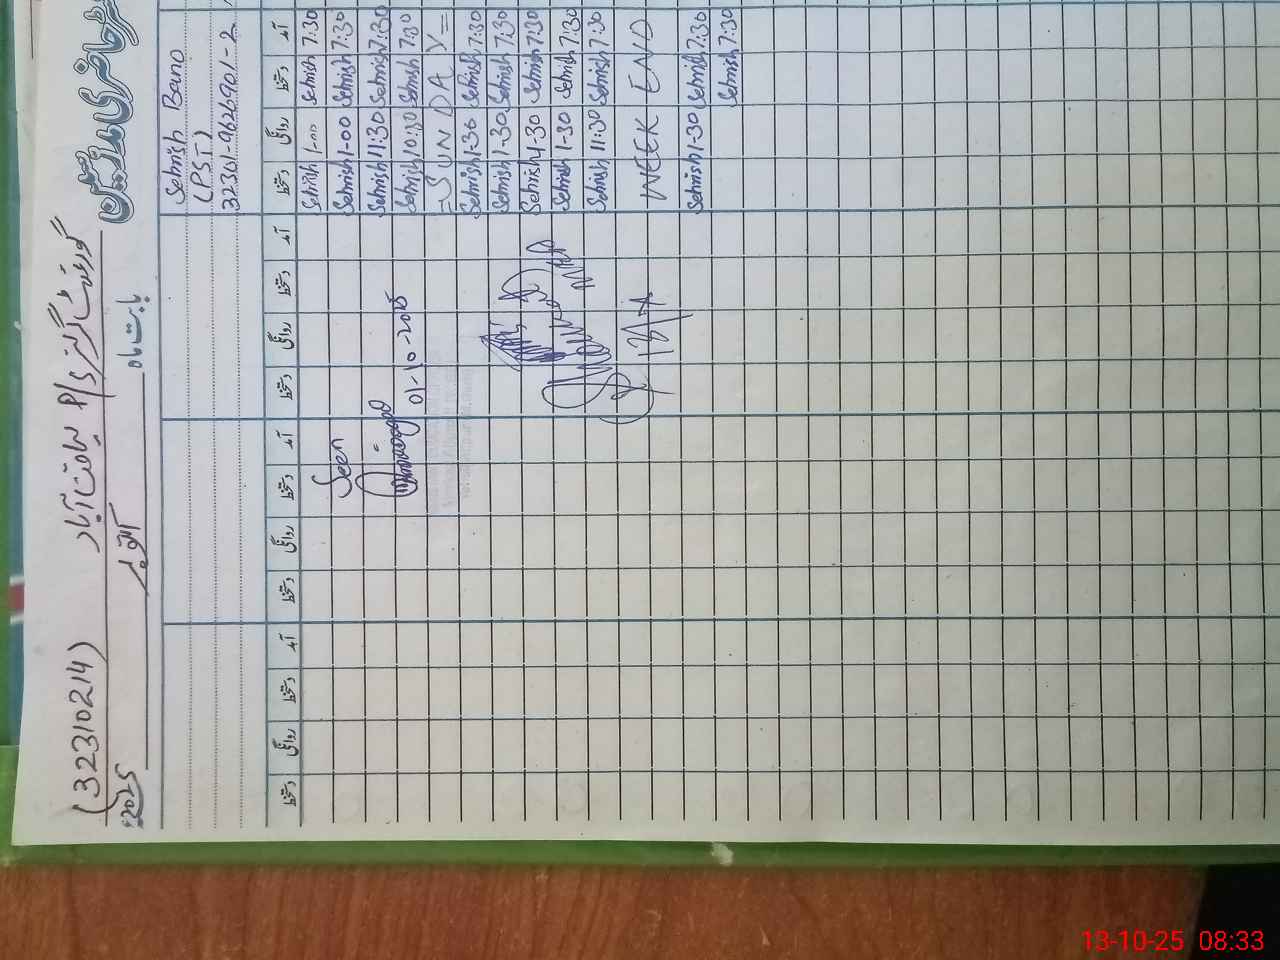 حاضری مدرسین
گورنمنٹ گرلز P/S لیاقت آباد (32310214)
بابت ماہ اکتوبر 2025
Sehrish Bano
(PST)
32301-9626901-2
آمد دستخط روانگی دستخط آمد دستخط روانگی دستخط آمد دستخط روانگی دستخط آمد دستخط روانگی دستخط
7:30 Sehrish 1-00 Sehrish
7:30 Sehrish 1-00 Sehrish
7:30 Sehrish 11:30 Sehrish
7:30 Sehrish 10:30 Sehrish
=SUNDAY=
7:30 Sehrish 1-30 Sehrish
7:30 Sehrish 1-30 Sehrish
7:30 Sehrish 1-30 Sehrish
7:30 Sehrish 1-30 Sehrish
7:30 Sehrish 11:30 Sehrish
WEEK END
7:30 Sehrish 1-30 Sehrish
7:30 Sehrish
Seen
01-10-2025
13-10-25 08:33